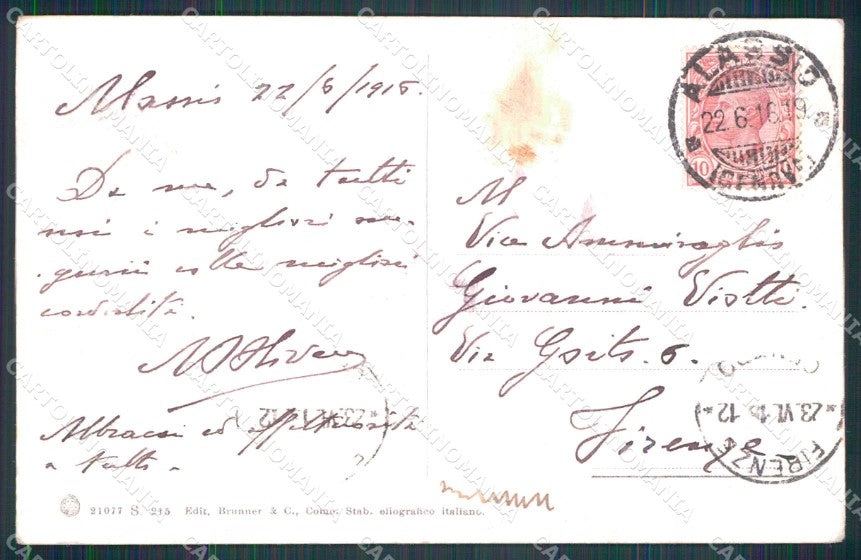 Alassio 22/6/1915.
Da me, da tutti
noi i migliori au-
gurii colla migliore
cordialità.
Abbracci ed affettuosità
a tutti.
M
Vice Ammiraglio
Giovanni Viotti.
Via 6.
Firenze
ALASSIO
22.6.
(GENOVA)
10
FIRENZE
CENTRO
23.VI.15 12
21077 S. 215 Edit. Brunner & C., Como. Stab. eliografico italiano.
CARTOLINOMANIA